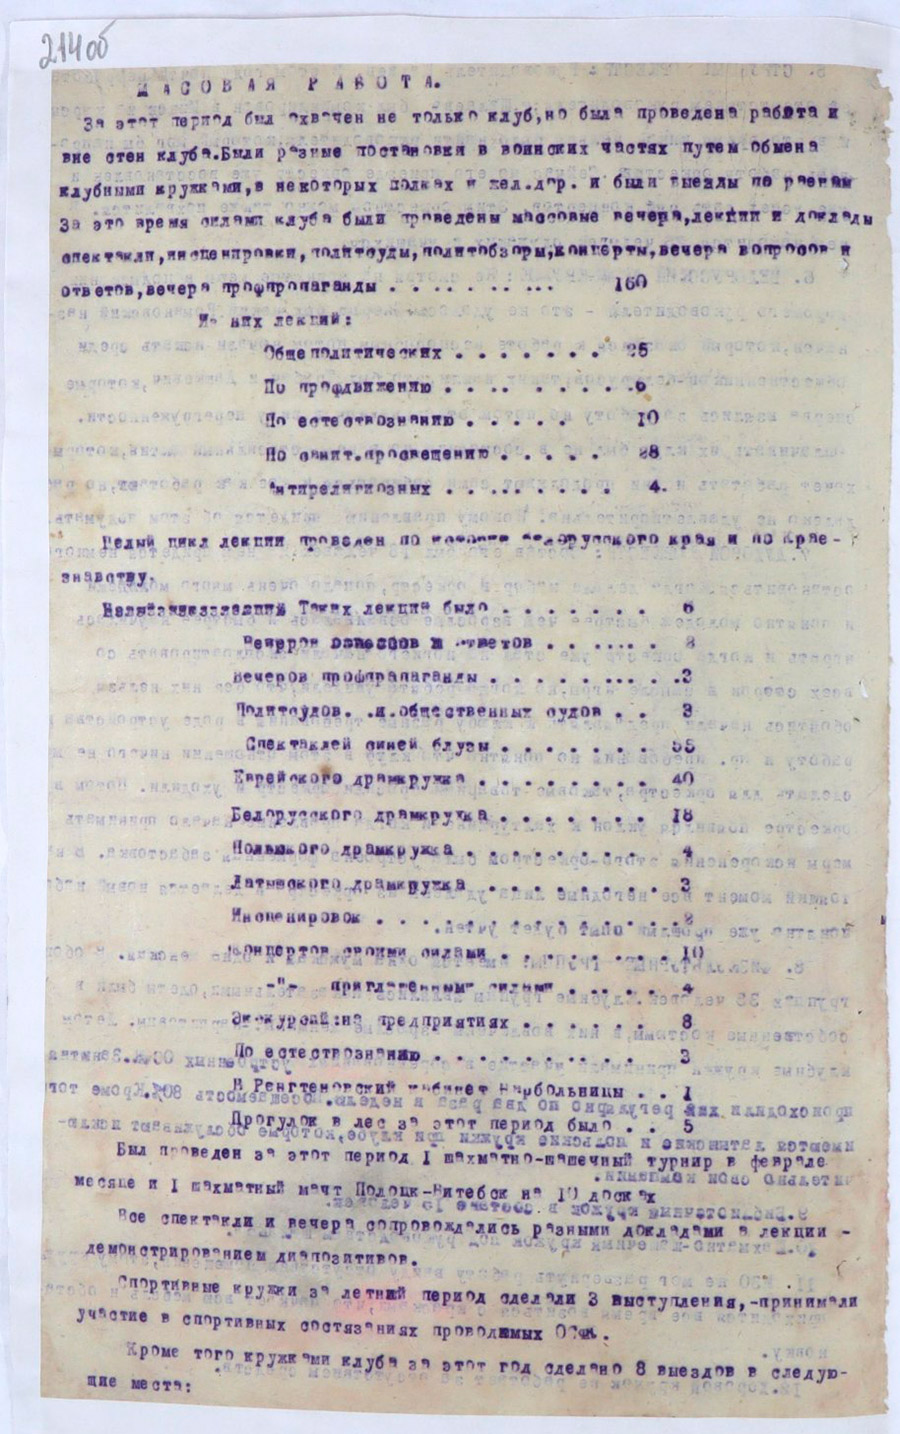 214об
МАСОВАЯ РАБОТА.
За этот период был охвачен не только клуб,но была проведена работа и
вне стен клуба.Были разные постановки в воинских частях путем обмена
клубными кружками,в некоторых полках и жел.дор. и были выезды по раенам
За это время силами клуба были проведены массовые вечера,лекции и доклады
спектакли,инсценировки,политсуды,политобзоры,концерты,вечера вопросов и
ответов,вечера профпропаганды . . . . . . . . . 160
Из них лекций:
Общеполитических . . . . . . . 25
По профдвижению . . . . . . . . .6
По естествознанию . . . . . 10
По санит.просвещению . . . . . 28
Антирелигиозных . . . . . . . . 4.
Целый цикл лекции проведен по истории белорусского края и по Крае-
знавству.
Таких лекций было . . . . . . . 6
Вечеров вопросов и ответов . . . . . . .
Вечеров профпрапаганды . . . . . . . . . .3
Политсудов. .и.общественных судов . . 3
Спектаклей синей блузы . . . . . . . 55
Еврейского драмкружка . . . . . . . . 40
Белорусского драмкружка . . . . . . . 18
Польского драмкружка . . . . . . . . 4
Латышского драмкружка . . . . . . . . 3
Инсценировок . . . . . . . . . . . . .
Концертов своими силами . . . . . . . .10
-"- приглашенными силами . . . . . 4
Экскурсий:на предприятиях . . . . . . 8
По естествознанию . . . . . . . . . . 3
В Рентгеновский кабинет . . 1
Прогулок в лес за этот период было . . 5
Был проведен за этот период I шахматно-шашечный турнир в феврале
месяце и I шахматный матч Полоцк-Витебск на 10 досках
Все спектакли и вечера сопровождались разными докладами а лекции -
демонстрированием диапозитивов.
Спортивные кружки за летний период сделали 3 выступления,-принимали
участие в спортивных состязаниях проводимых
Кроме того кружками клуба за этот год сделано 8 выездов в следую-
щие места: